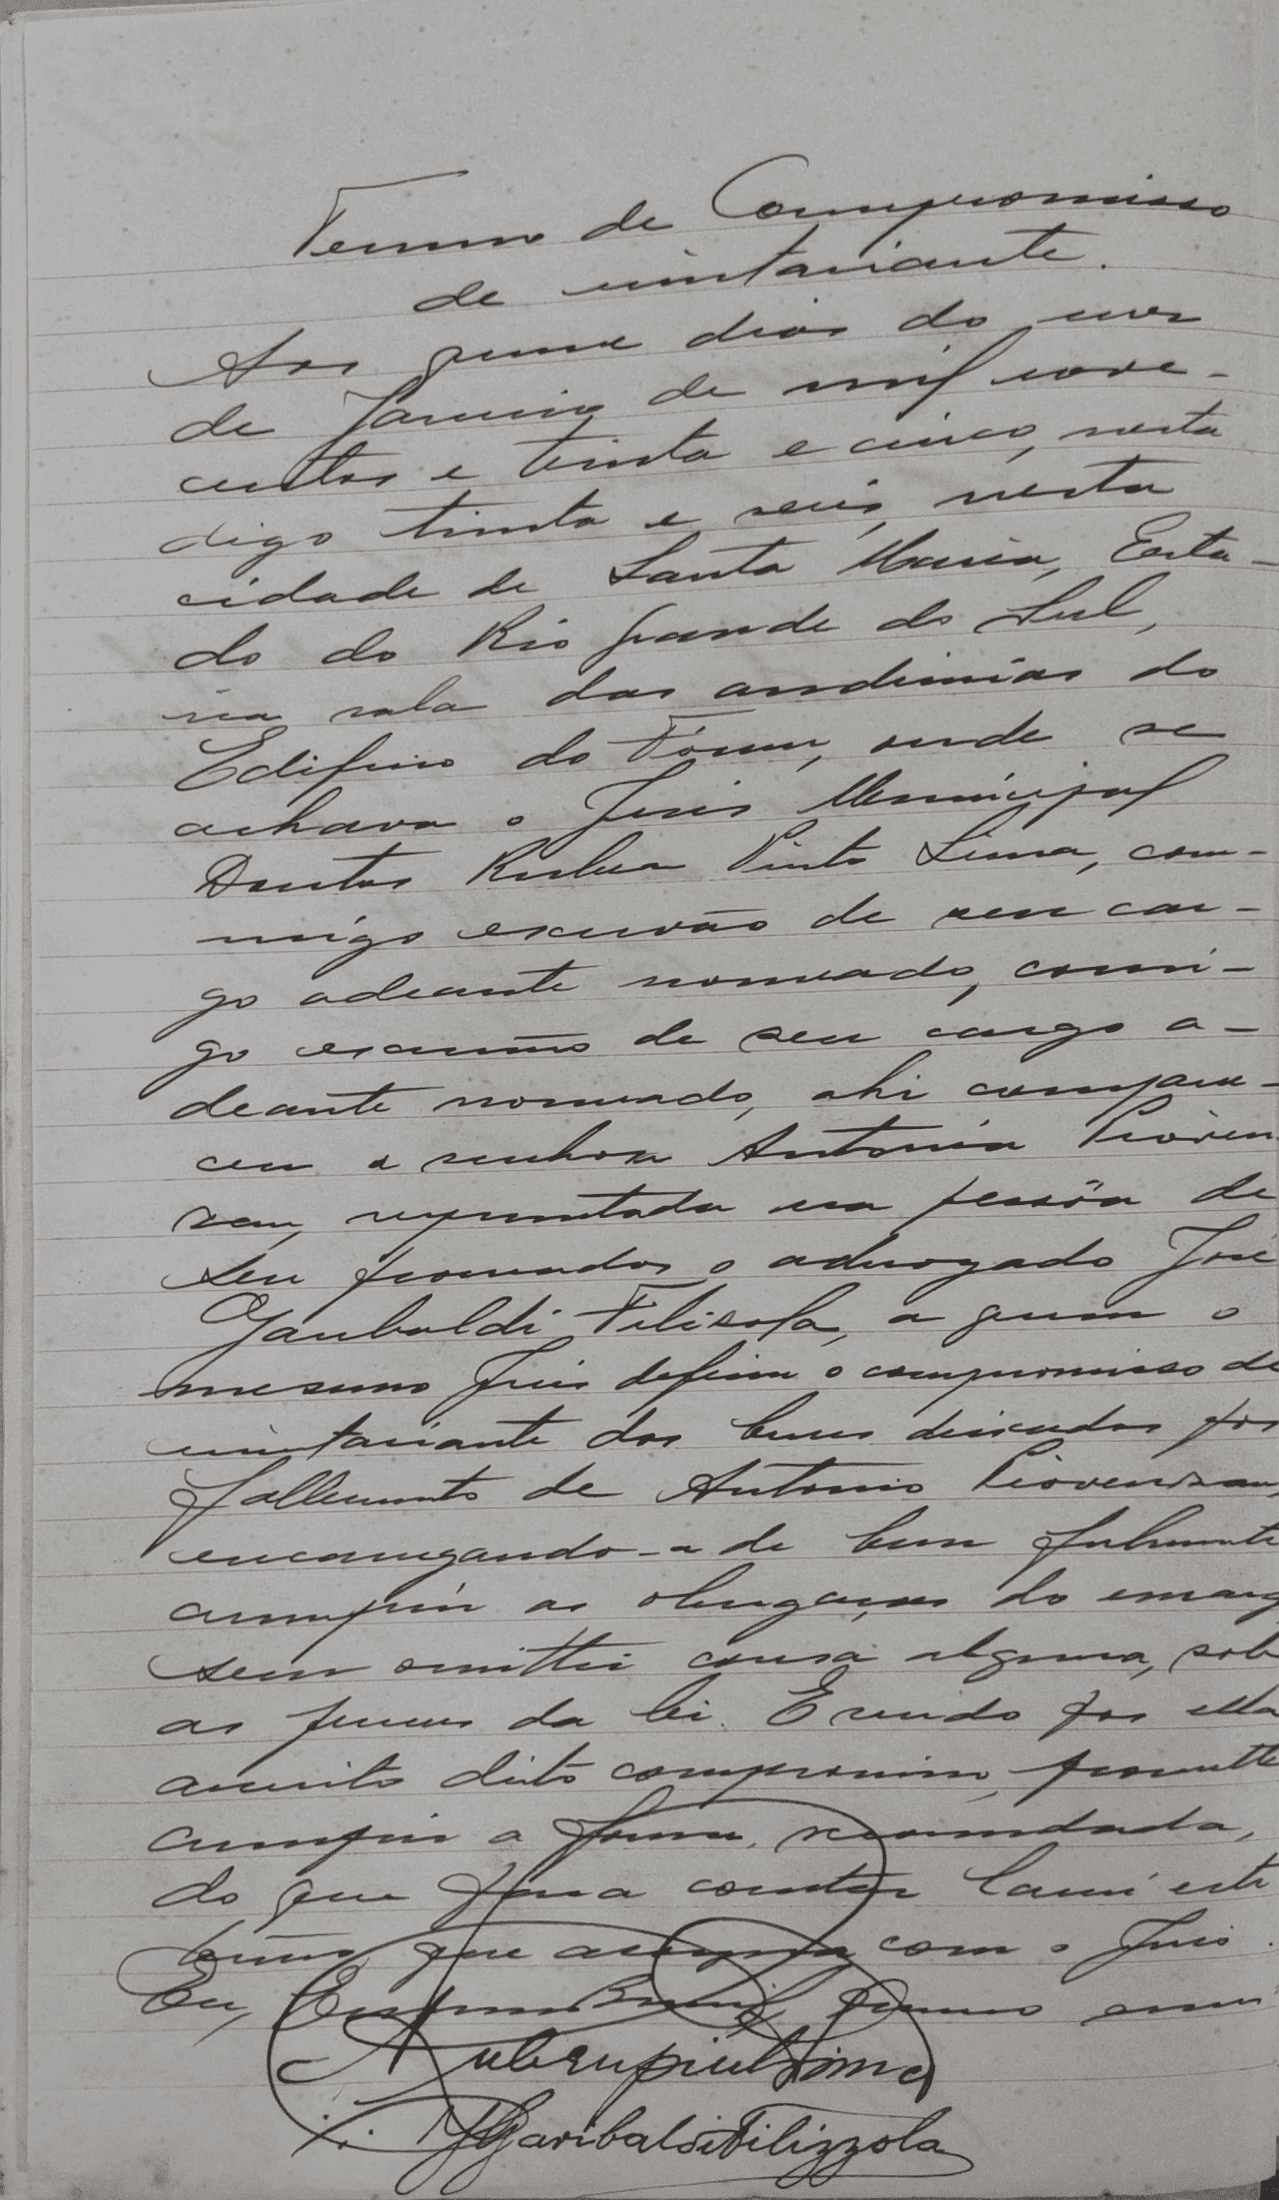 Termo de Compromisso
de inventariante.
Aos quinze dias do mez
de Janeiro de mil nove-
centos e trinta e cinco, nesta
digo trinta e seis, nesta
cidade de Santa Maria, Esta-
do do Rio Grande do Sul,
na sala das audiencias do
Edificio do Fórum, onde se
achava o Juiz Municipal
Doutor Ruben Pinto Lima, com-
migo escrivão de seu car-
go adeante nomeado, comi-
go escrivão de seu cargo a-
deante nomeado, ahi compare-
ceu a senhora Antonia Pioven
zan, representada na pessôa de
seu procurador o advogado José
Garibaldi Filizola, a quem o
mesmo Juiz deferiu o compromisso de
inventariante dos bens deixados por
fallecimento de Antonio Piovenzan,
encarregando-a de bem fielmente
cumprir as obrigações do encargo
sem omittir cousa alguma, sob
as penas da lei. E sendo por ella
acceito dito compromisso, prometteu
cumprir a forma recomendada,
do que para constar lavrei este
termo que assigna com o Juiz.
Eu,
Ruben Pinto Lima
J Garibaldi Filizzola